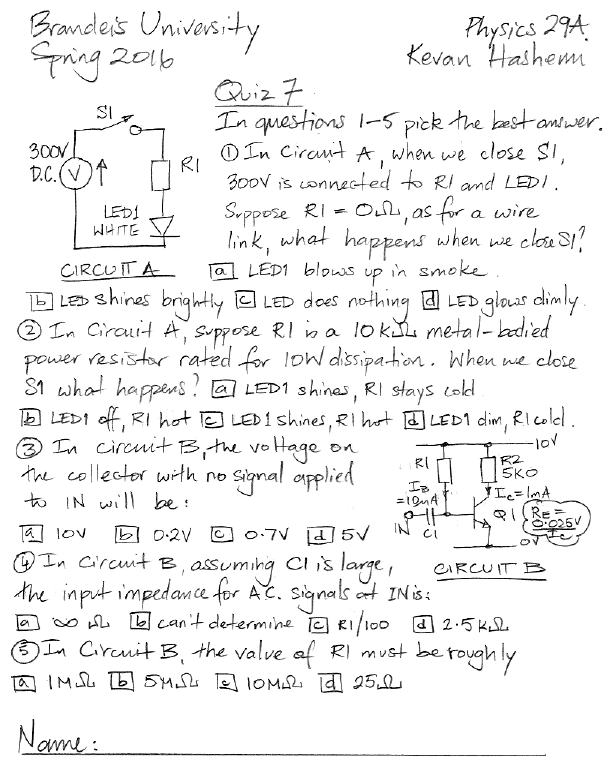 Brandeis University
Physics 29A.
Spring 2016
Kevan Hashemi
Quiz 7
In questions 1-5 pick the best answer.
① In Circuit A, when we close S1,
300V is connected to R1 and LED1.
Suppose R1 = 0Ω, as for a wire
link, what happens when we close S1?
S1
300V
D.C.
V
R1
LED1
WHITE
CIRCUIT A
a LED1 blows up in smoke.
b LED shines brightly c LED does nothing d LED glows dimly.
② In Circuit A, suppose R1 is a 10kΩ metal-bodied
power resistor rated for 10W dissipation. When we close
S1 what happens? a LED1 shines, R1 stays cold
b LED1 off, R1 hot c LED1 shines, R1 hot d LED1 dim, R1 cold.
③ In circuit B, the voltage on
the collector with no signal applied
to IN will be:
a 10V b 0.2V c 0.7V d 5V
10V
R1
R2
5KΩ
IB
=10μA
IC=1mA
Q1
RE=
0.025V
Ic
IN
C1
0V
CIRCUIT B
④ In Circuit B, assuming C1 is large,
the input impedance for A.C. signals at IN is:
a ∞ Ω b can't determine c R1/100 d 2.5kΩ
⑤ In Circuit B, the value of R1 must be roughly
a 1MΩ b 5MΩ c 10MΩ d 25Ω
Name: